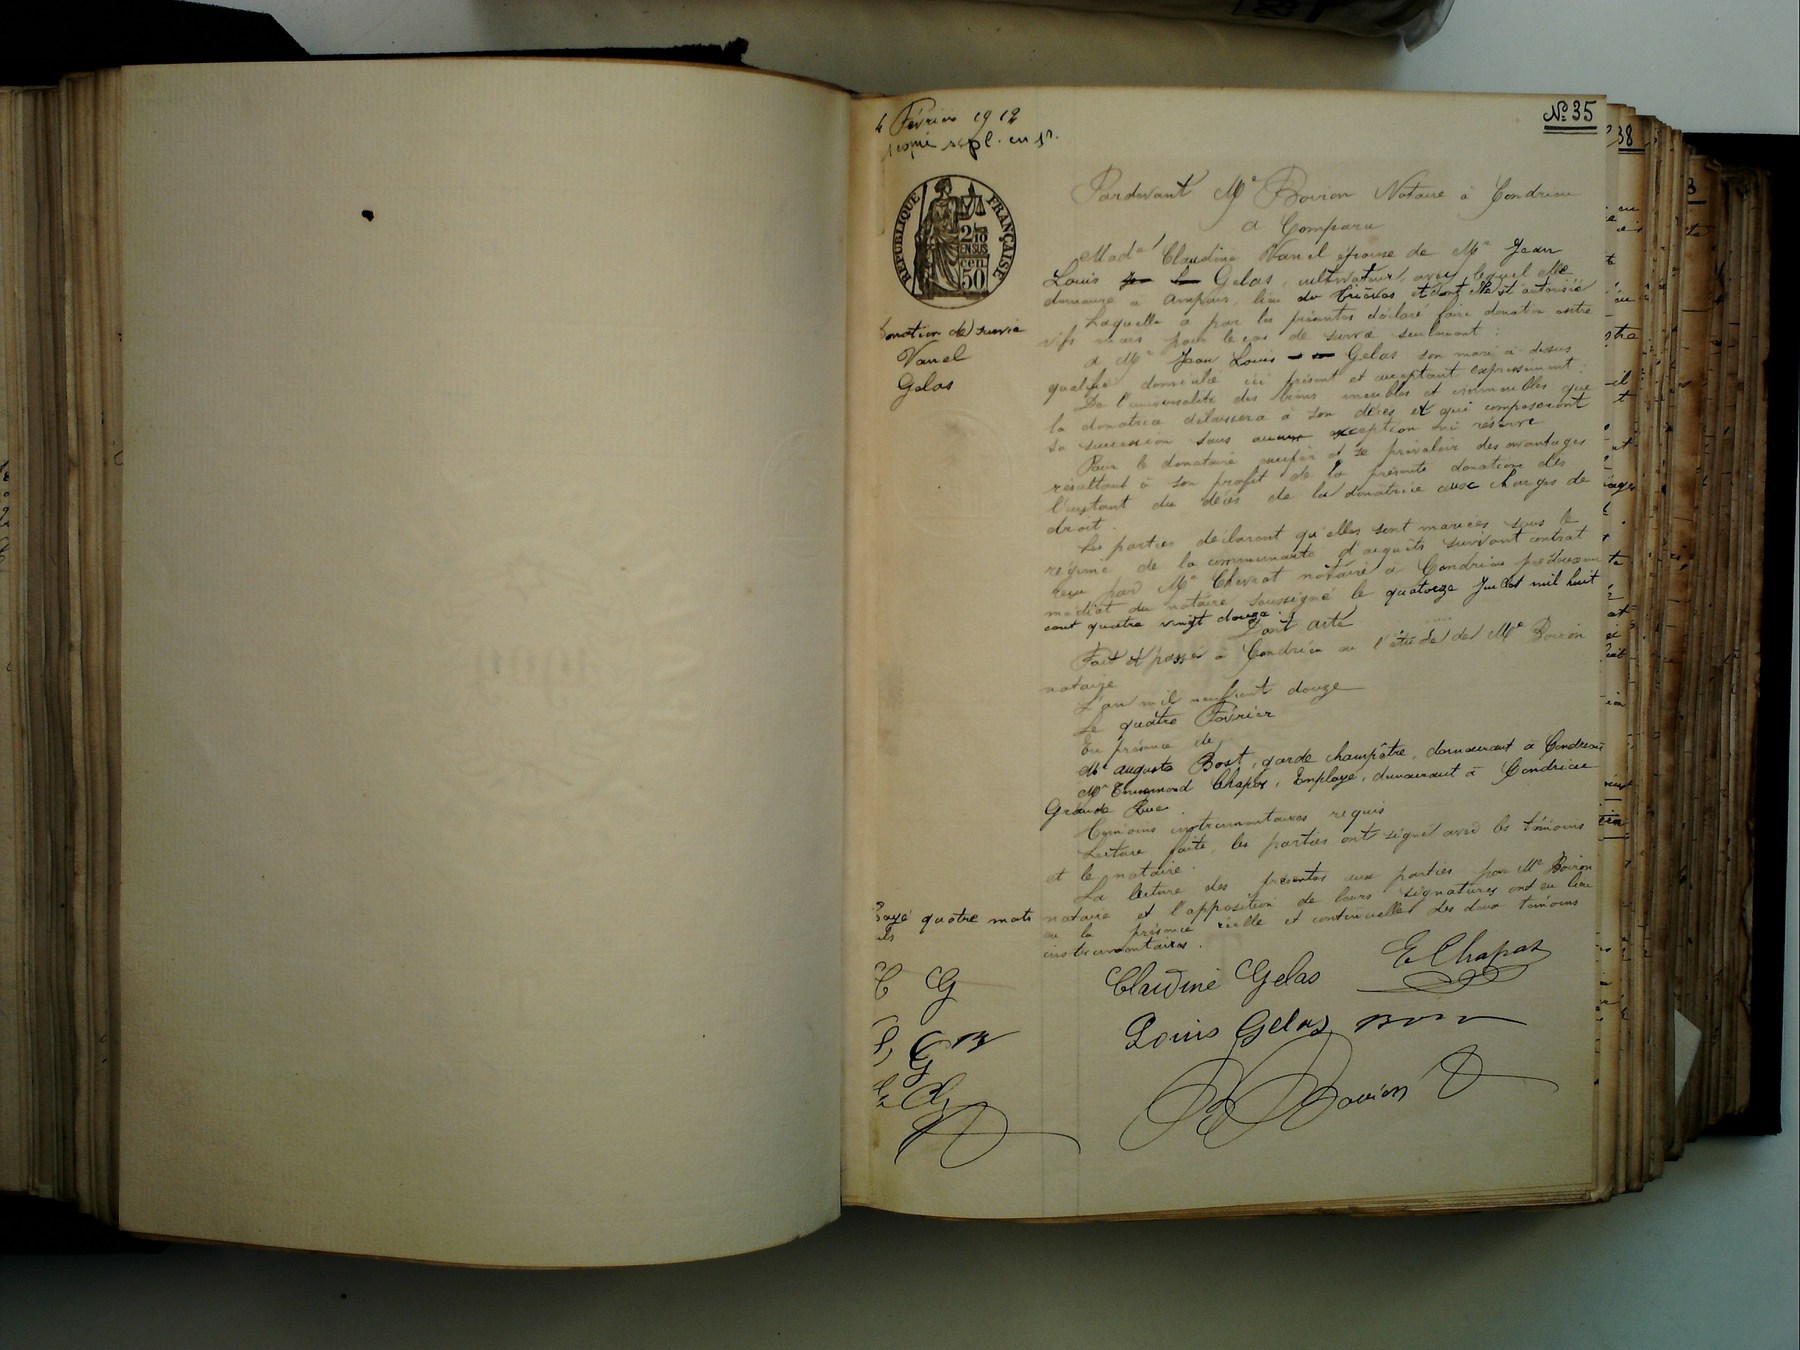 4 Février 1912
N° 35
Pardevant Me Boiron Notaire à Condrieu
a Comparu
Made Claudine Vanel épouse de Mr Jean
Louis Gelas, cultivateur, avec lequel elle
demeure à Ampuis, lieu de et dont elle est autorisée
Laquelle a par les présentes déclaré faire donation entre
vifs mais pour le cas de survie seulement :
à Mr Jean Louis Gelas son mari ci-dessus
qualifié domicilié ici présent et acceptant expressément :
De l'universalité des biens meubles et immeubles que
la donatrice délaissera à son décès et qui composeront
sa succession sans aucune exception ni réserve
Pour le donataire et se prévaloir des avantages
résultant à son profit de la présente donation dès
l'instant du décès de la donatrice aux charges de
droit.
Les parties déclarent qu'elles sont mariées sous le
régime de la communauté d'acquêts suivant contrat
reçu par Me Chevrot notaire à Condrieu
médiat du notaire soussigné le quatorze Juillet mil huit
cent quatre vingt douze
Dont acte
Fait et passé à Condrieu en l'étude de Me Boiron
notaire
L'an mil neuf cent douze
Le quatre Février
En présence de
Mr Auguste Bost, garde champêtre, demeurant à Condrieu
Mr Chapas, Employé, demeurant à Condrieu
Grande Rue.
Témoins instrumentaires requis
Lecture faite, les parties ont signé avec les témoins
et le notaire.
La lecture des présentes aux parties par Me Boiron
notaire et l'apposition de leurs signatures ont eu lieu
en la présence réelle et continuelle des deux témoins
instrumentaires.
Claudine Gelas
E Chapas
Louis Gelas
Boiron
RÉPUBLIQUE FRANÇAISE
2/10
EN SUS
cen
50
Donation de survie
Vanel
Gelas
Rayé quatre mots
nuls
C G
38